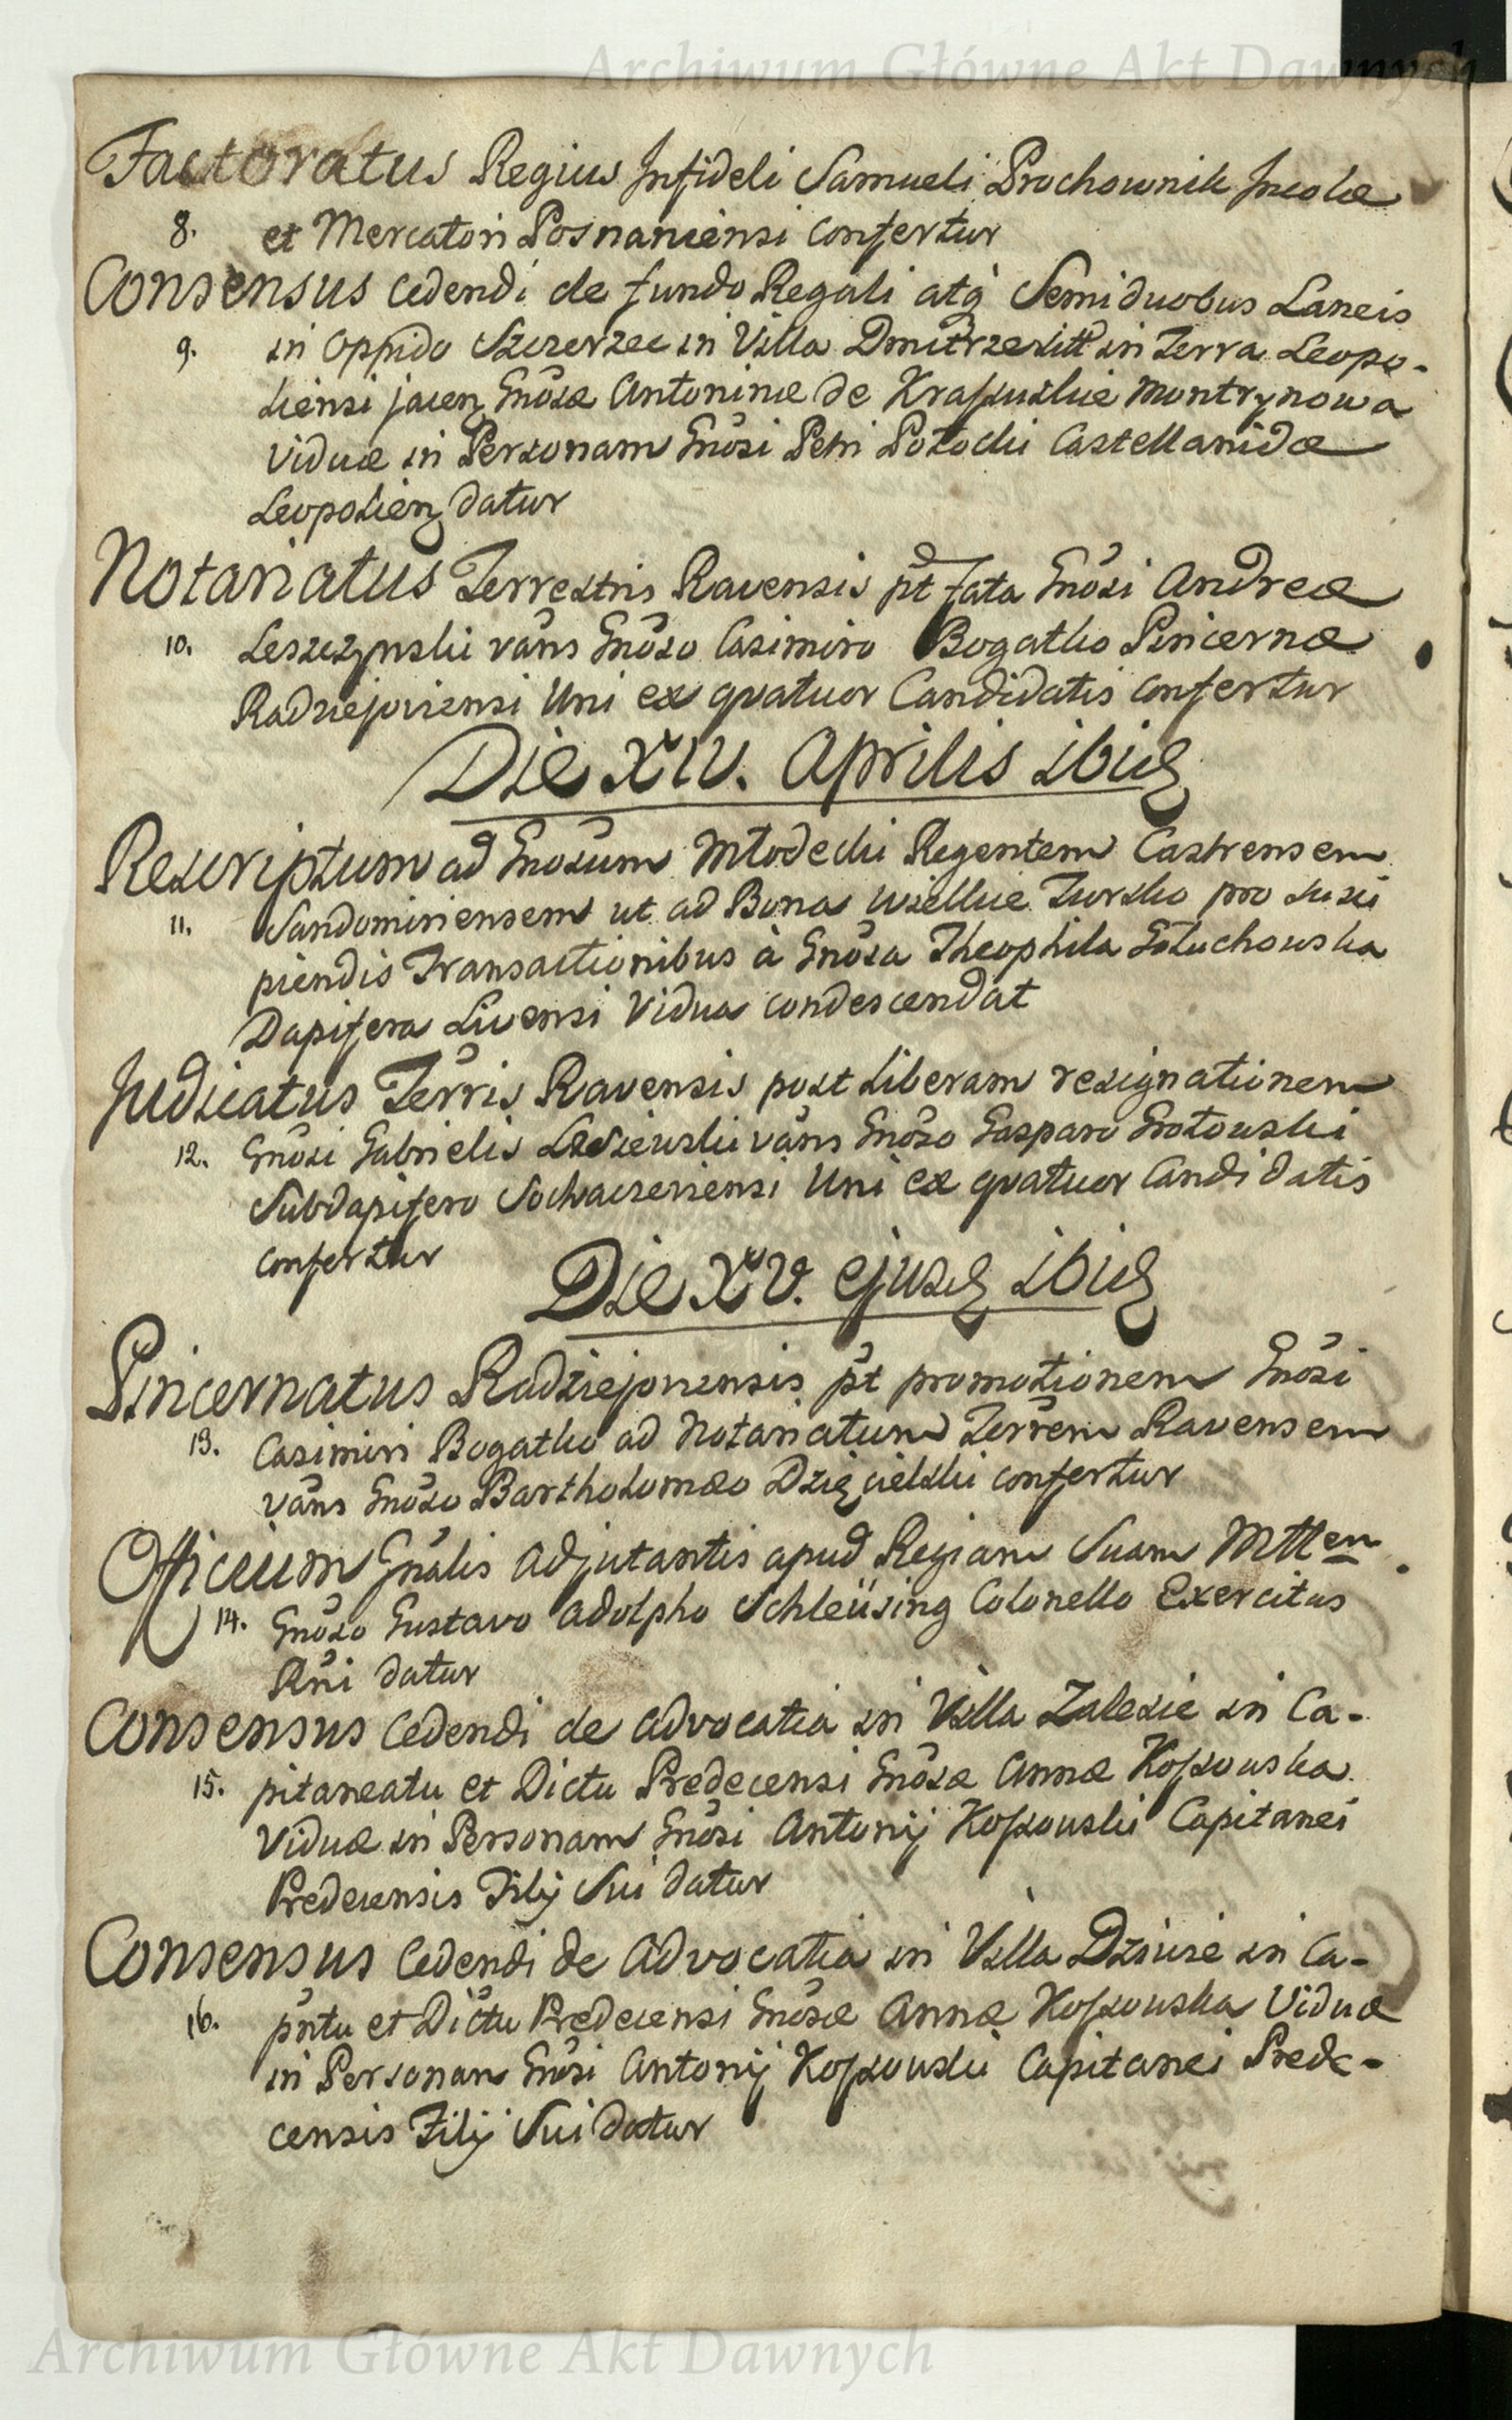 Archiwum Główne Akt Dawnych
Factoratus Regius Infideli Samueli Prochownik Incolæ
8. et Mercatori Posnaniensi confertur
Consensus cedendi de fundo Regali atq́ Semiduobus Laneis
9. in Oppido Szczerzec in Villa in Terra Leopo-
liensi jacen Gnôsæ Antoninæ de Krassuskie Montrynowa
Viduæ in Personam Gnôsi Petri Potocki Castellanidæ
Leopolien datur
Notariatus Terrestris Ravensis p̂t fata Gnôsi Andreæ
10. Leszczynski vâns Gnôso Casimiro Bogatko Pincernæ
Radziejoviensi Uni ex qvatuor Candidatis confertur
Die XIV. Aprilis ibid
Rescriptum ad Gnosum Młodecki Regentem Castrensem
11. Sandomiriensem ut ad Bona Wielkie Zursko pro susci
piendis Transactionibus à Gnôsa Theophila Głuchowska
Dapifera Livensi Vidua condescendat
Judicatus Terris Ravensis post Liberam resignationem
12. Gnôsi Gabrielis vâns Gnôso Gasparo Grotowski
Subdapifero Sochaczeviensi Uni ex qvatuor Candidatis
confertur
Die XV. ejusd ibid
Pincernatus Radziejoviensis p̂t promotionem Gnôsi
13. Casimiri Bogatko ad Notariatum Terrem Ravensem
vâns Gnôso Bartholomæo Dzięcielski confertur
Officium Gnâlis Adjutantis apud Regiam Suam Mttem
14. Gnôso Gustavo Adolpho Schleüsing Colonello Exercitus
Rni datur
Consensus Cedendi de Advocatia in Villa Zalesie in Ca-
15. pitaneatu et Dictu Predecensi Gnôsæ Annæ Kossowska
Viduæ in Personam Gnôsi Antonij Kossowski Capitanei
Predecensis Filij Sui datur
Consensus Cedendi de Advocatia in Villa in Ca-
16. pntu et Dictu Predecensi Gnôsæ Annæ Kossowska Viduæ
in Personam Gnôsi Antonij Kossowski Capitanei Prede-
censis Filij Sui datur
Archiwum Główne Akt Dawnych